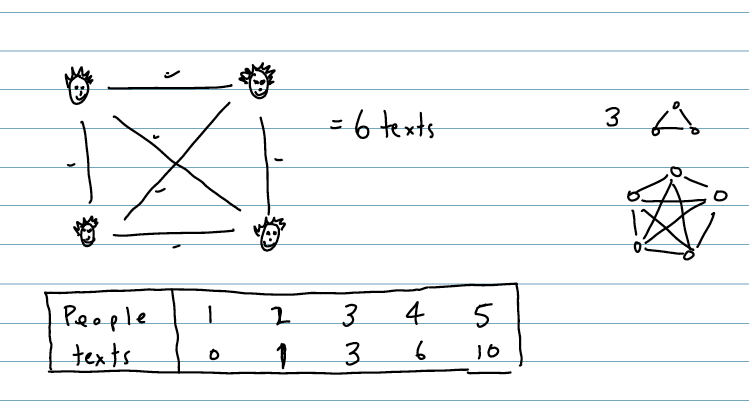 = 6 texts
3
People 1 2 3 4 5
texts 0 1 3 6 10